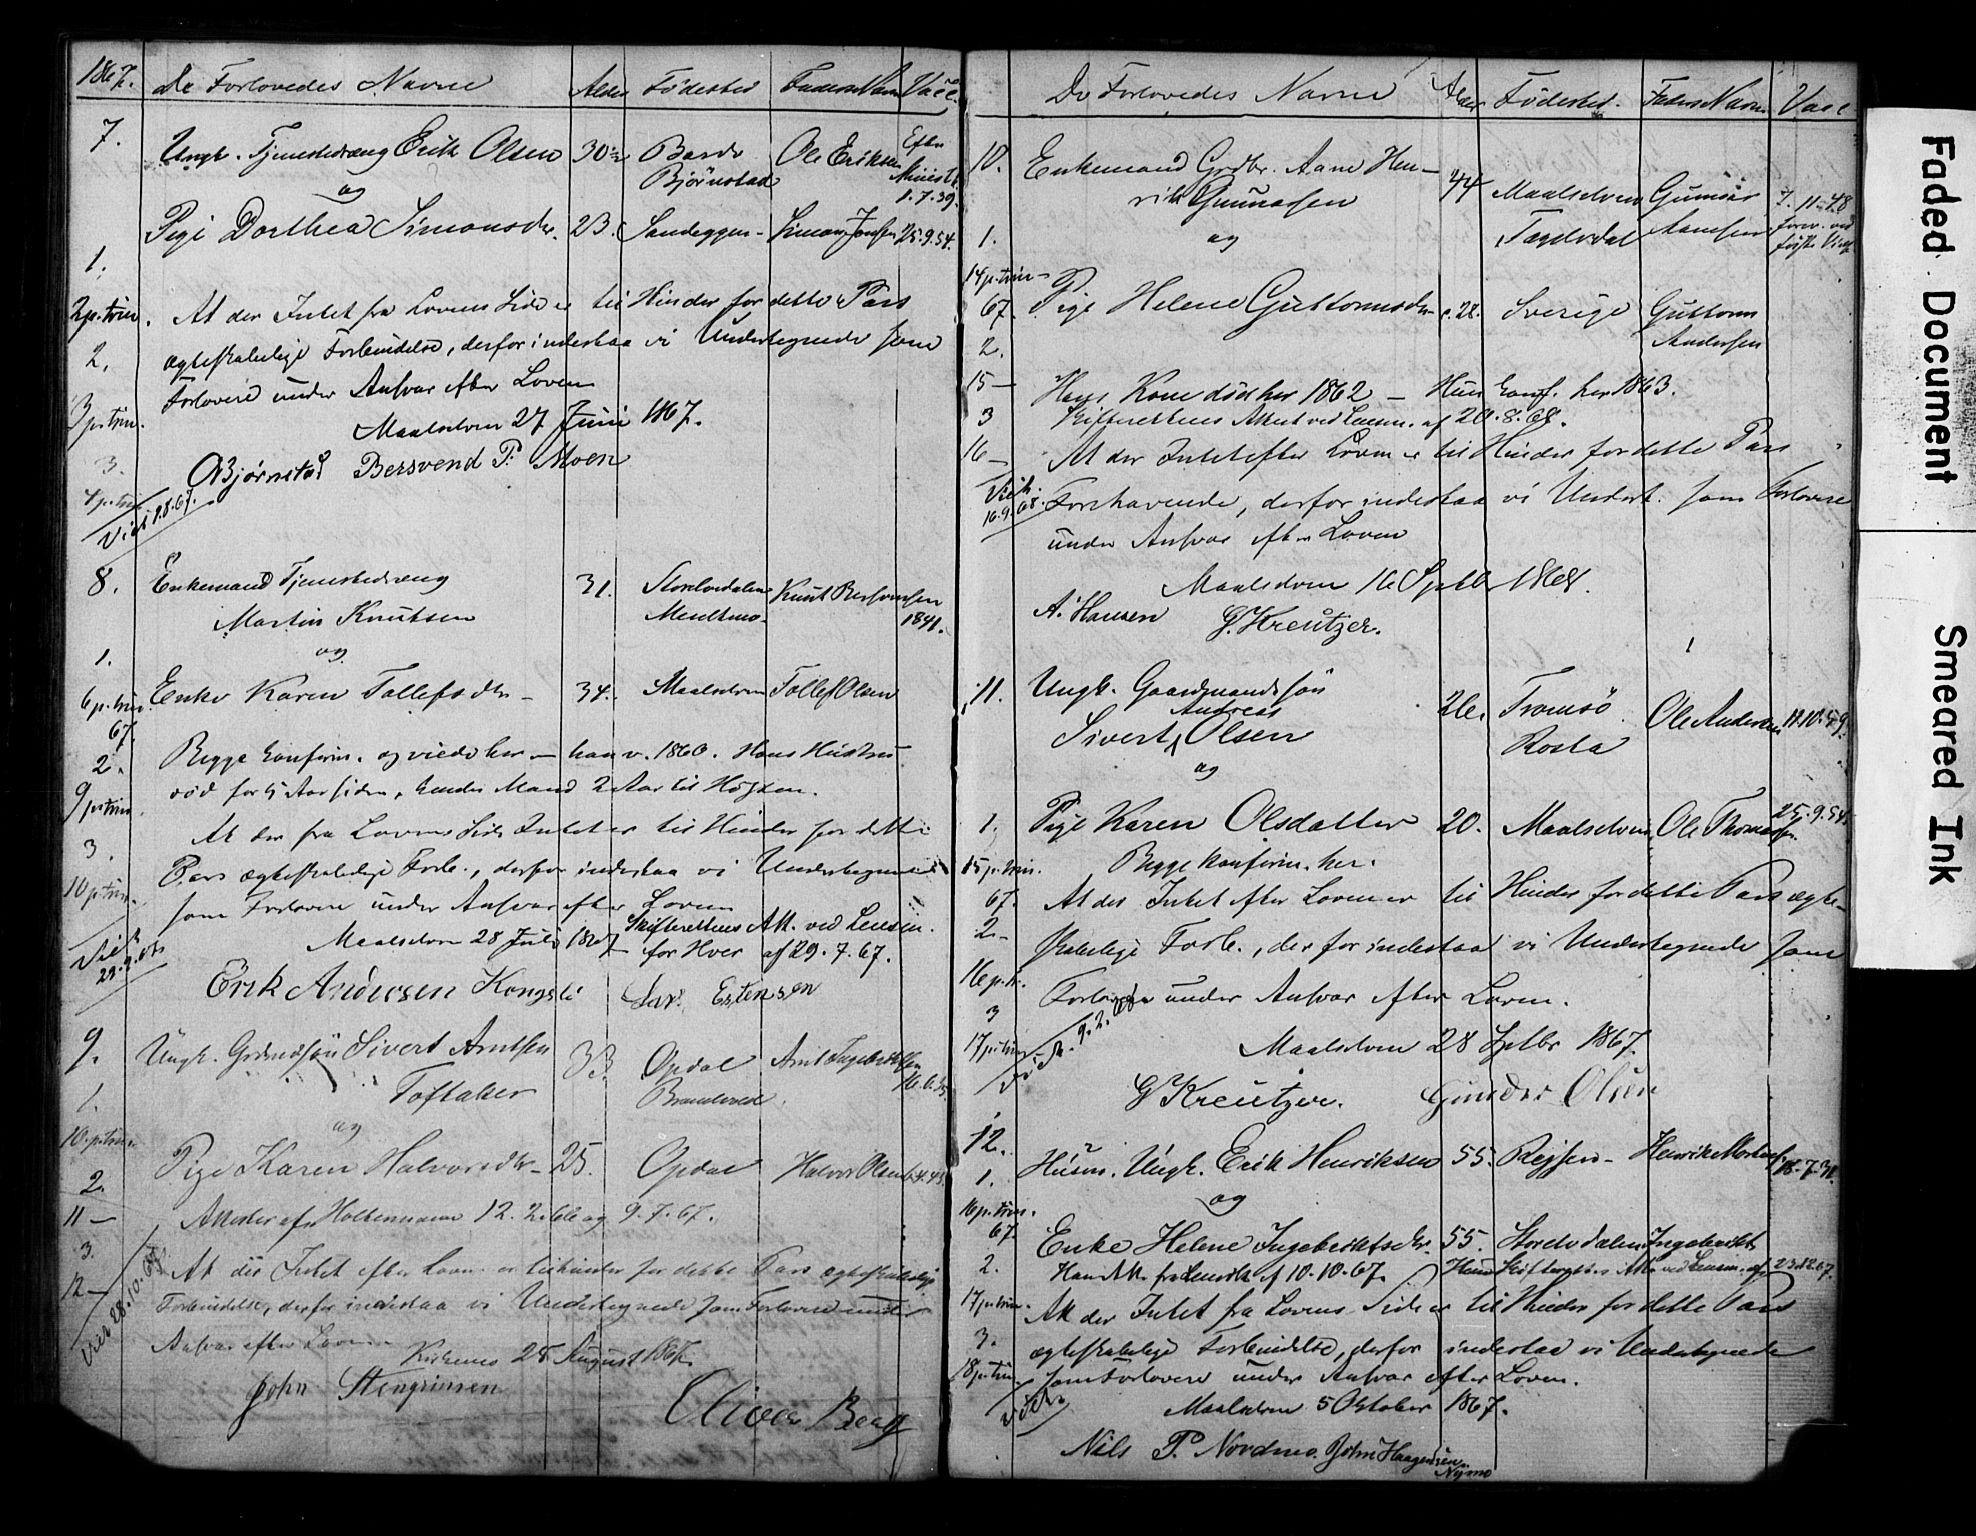 1867. De Forlovedes Navne Alder Fødested Faders Navn Vacc.
7. Ungk. Tjenestedreng Erik Olsen 30½ Bardo Ole Eriksen Efter
Bjørnstad Minist.
og 1.7.39.
Pige Dorthea Simonsdr. 23. Sandeggen Simon Jonsen 25.9.54.
1.
2 p. trin. At der Intet fra Lovens Side er til Hinder for dette Pars
2. ægteskabelige Forbindelse, derfor indestaa vi Undertegnede som
Forlovere under Ansvar efter Loven
3 p. trin. Maalselven 27 Juni 1867.
3. OBjørnstad Bersvend P. Moen
4 p. trin.
Viet 1.8.67.
8. Enkemand Tjenestedreng 31. Knut
Martin Knutsen 1841.
1. og
6 p. trin. Enke Karen Tollefsdr. 34. Maalselven Tollef Olsen
67.
2. Begge konfirm. og viede her — han v. 1860. Hans Hustru
9 p. trin. død for 5 Aar siden, hendes Mand 2 Aar til Høsten.
3. At der fra Lovens Side Intet er til Hinder for dette
10 p. trin. Pars ægteskabelige Forb., derfor indestaa vi Undertegnede
som Forlovere under Ansvar efter Loven
Maalselven 28 Juli 1867 Skifterettens Att. ved Lensm.
Viet for Hver af 29.7.67.
Erik Andersen Kongsli Lar. Estensen
9. Ungk. Grdmdsøn Sivert Arntsen 33. Opdal Arnt Ingebrigtsen
1. Toftaker
10. p. trin. og
2. Pige Karen Halvorsdr. 25. Opdal Halvor Olsen
11 — Attester af Holtermann 12.2.66 og 9.7.67.
3. At der Intet efter Loven er til hinder for dette Pars ægteskabelige
12 — Forbindelse, derfor indestaa vi Undertegnede som Forlovere under
Viet 28.10.67. Ansvar efter Loven
Kirkemo 25 August 1867.
John Stengrimsen Oliver Berg
De Forlovedes Navne Alder Fødested. Faders Navn Vacc.
10. Enkemand Grdbr. Aane Hen-
rik Gunnarsen 44 Maalselven Gunnar 7.11.48
1. og Fagerlidal Aanesen
14 p. trin
67. Pige Helene Guttormsdr. c. 28. Sverige Guttorm
2. Andersen
15 — Hans Kone død her 1862 — Hun konf. her 1863.
3 Skifterettens Attest ved Lensm. af 20.8.68.
16 — At der Intet efter Loven er til Hinder for dette Pars
Viet. Forehavende, derfor indestaa vi Undert. som Forlovere
16.9.68. under Ansvar efter Loven
Maalselven 16 Septb. 1868.
A. Hansen G. Kreützer.
11. Ungk. Gaardmandssøn
Andreas
Sivert Olsen 26. Tromsø Ole Andersen 11.10.59.
og Rosta
1. Pige Karen Olsdatter 20. Maalselven Ole Thomassen 25.9.54.
15 p. trin. Begge konfirm. her.
67. At der Intet efter Loven er til Hinder for dette Pars ægte-
2 — skabelige Forb., derfor indestaa vi Undertegnede som
16 p. tr. Forlovere under Ansvar efter Loven.
3
17 p. trin Maalselven 28 Septbr 1867.
G Kreützer. Gunder Olsen
12. Husm. Ungk. Erik Henriksen 55. Rejsen Henrik Mortensen
1. og
16 p. trin.
67. Enke Helene Ingebrigtsdr. 55. Storelvdalen Ingebrigt
2. Han Att. fra Lensm. af 10.10.67. Hun Skifterettens Att. ved Lensm. af 23.12.67.
17 p. trin. At der Intet fra Lovens Side er til Hinder for dette Pars
3. ægteskabelige Forbindelse, derfor indestaa vi Undertegnede
18 p. trin. som Forlovere under Ansvar efter Loven.
Viet Maalselven 5 Oktober 1867.
Nils P. Nordmo. John Haagensen
Nymo
Faded Document
Smeared Ink